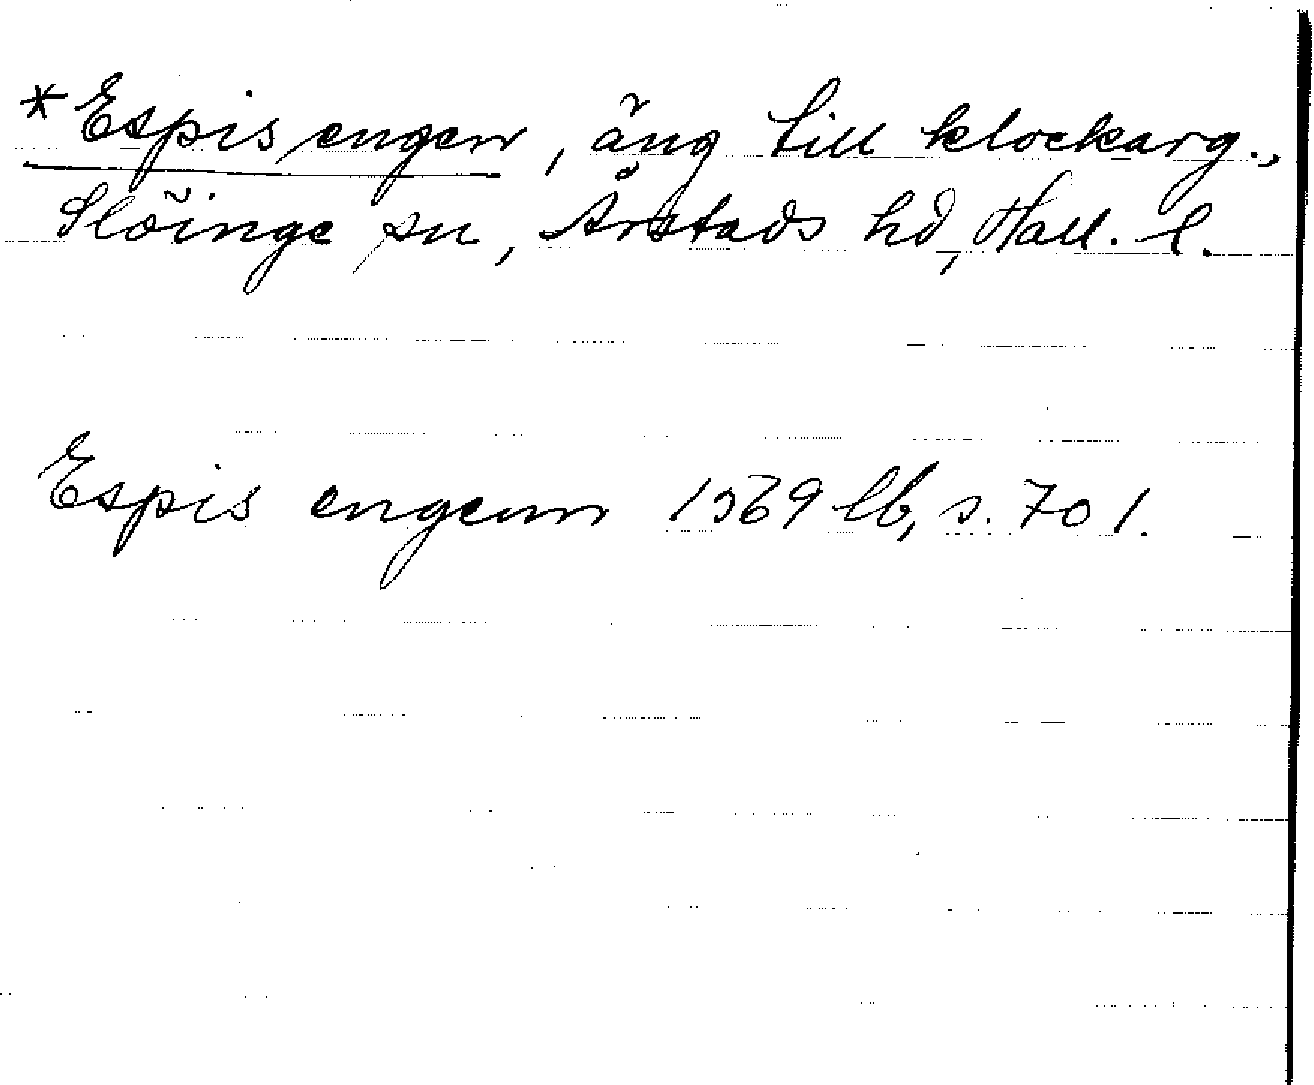 *Espis engen, äng till klockarg.,
Slöinge sn, Årstads hd, Hall. l.
Espis engenn 1569 lb, s. 701.